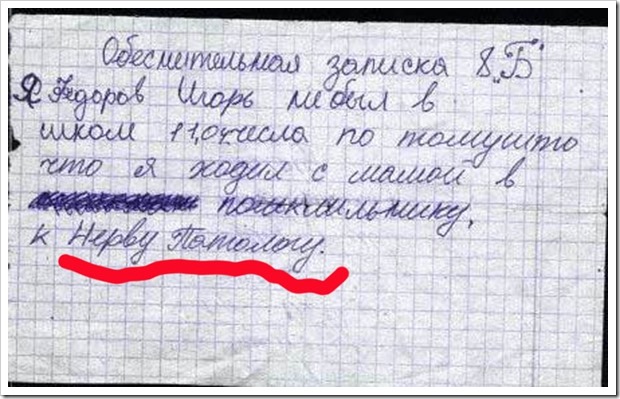 Обеснительная записка 8 „Б"
Я Федоров Игорь небыл в
школ 11,04 числа по томушто
что я ходил с мамой в
к Нерву Потологу.